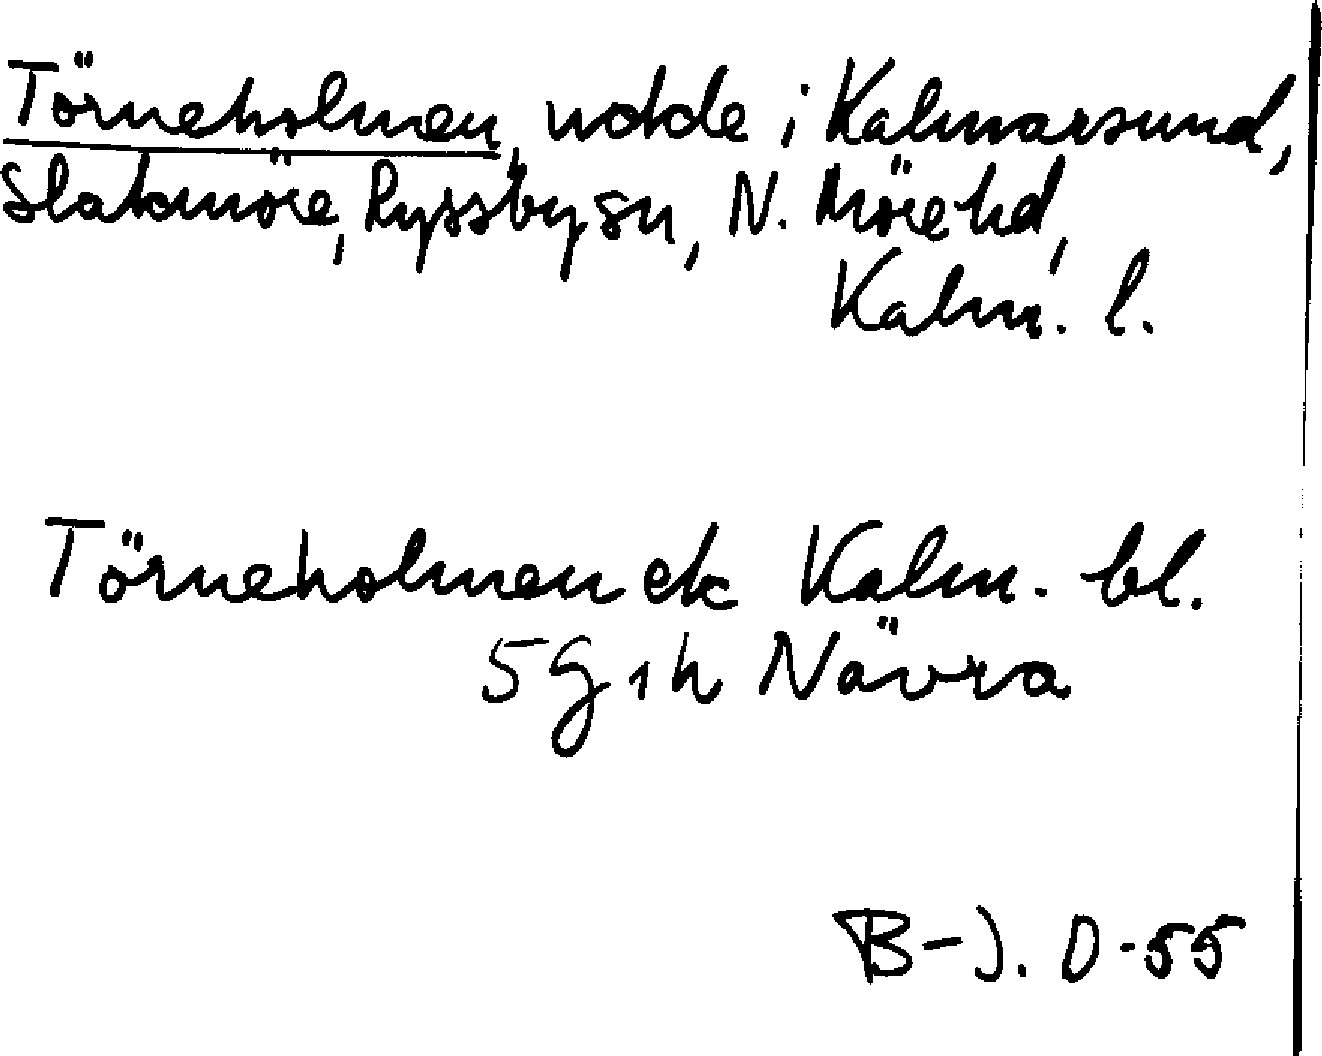 Törneholmen, udde i Kalmarsund,
Slakmöre, Ryssby sn, N. Möre hd,
Kalm. l.
Törneholmen ek Kalm. bl.
5 G 1 h Nävra
B-J. O-55